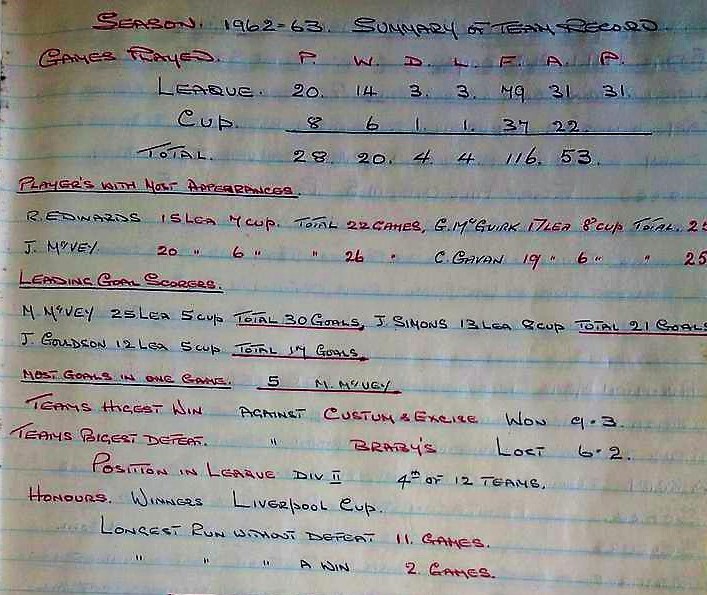 SEASON. 1962-63. SUMMARY OF TEAM RECORD.
GAMES PLAYED. P. W. D. L. F. A. P.
LEAGUE. 20. 14 3. 3. 79 31 31.
CUP. 8 6 1. 1. 37 22
TOTAL. 28 20. 4 4 116. 53.
PLAYER'S WITH MOST APPEARANCES.
R. EDWARDS 15 LEA 7 CUP. TOTAL 22 GAMES, G. McGUIRK 17 LEA 8 CUP TOTAL. 25
J. McVEY 20 " 6 " " 26 " C. GAVAN 19 " 6 " " 25
LEADING GOAL SCORERS.
M. McVEY 25 LEA 5 CUP TOTAL 30 GOALS, J. SIMONS 13 LEA 8 CUP TOTAL 21 GOALS
J. GOULDSON 12 LEA 5 CUP TOTAL 17 GOALS
MOST GOALS IN ONE GAME. 5 M. McVEY
TEAMS HIGEST WIN AGAINST CUSTUM & EXCISE WON 9-3.
TEAMS BIGEST DEFEAT. " BRABY'S LOST 6-2.
POSITION IN LEAGUE DIV II 4th OF 12 TEAMS.
HONOURS. WINNERS LIVERPOOL CUP.
LONGEST RUN WITHOUT DEFEAT 11. GAMES.
" " " A WIN 2. GAMES.